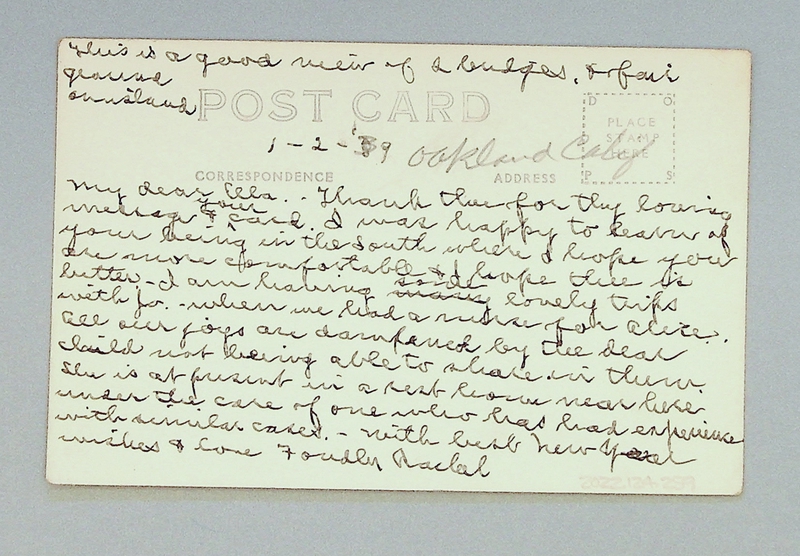 This is a good view of 2 bridges, & fair
ground
on island
POST CARD
1-2-39 Oakland Calif
D O
PLACE
STAMP
HERE
P S
CORRESPONDENCE
ADDRESS
My dear Ella.. Thank thee for thy loving
message & your card. I was happy to learn of
your being in the South where I hope you
are more comfortable & I hope thee is
better - I am having some lovely trips
with Jr. - when we had a nurse for Alice.
All our joys are dampened by the dear
child not being able to share in them.
She is at present in a rest home near here
under the care of one who has had experience
with similar cases. - With best New Year
wishes & love Fondly Rachel
2022.124.259